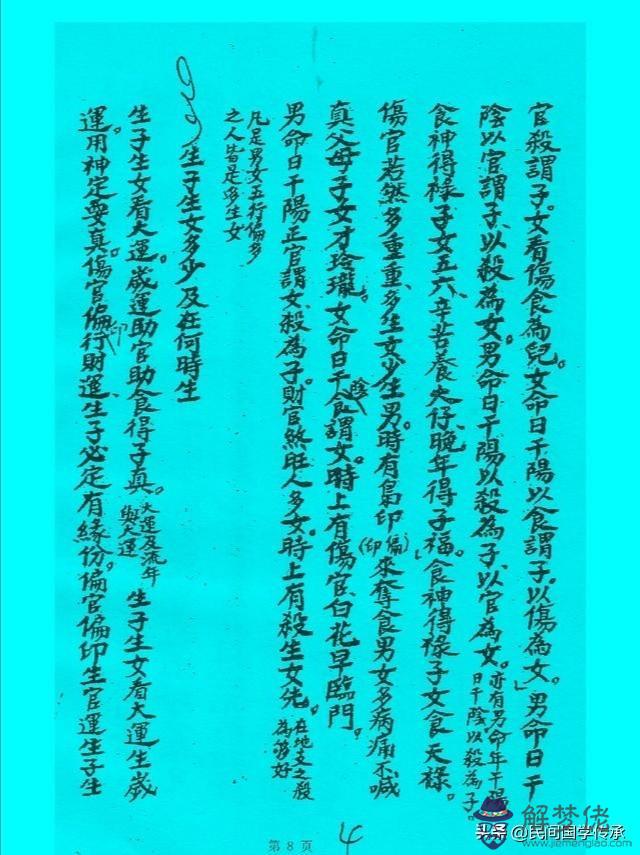 官殺謂子。女看傷食為兒。女命日干陽以食謂子。以傷為女。」男命日干
陰以官謂子、以殺為女。男命日干陽以殺為子、以官為女。亦有男命年干陽 日干陰以殺為子。
食神得祿子女五六、辛苦養大仔、晚年得子福。「食神得祿子女食天祿。
傷官若然多重重、多生女少生男。時有梟印(偏印)來奪食男女多病痛不喊
真父母子女才玲瓏。女命日干陰食謂女。時上有傷官、白花早臨門。
男命日干陽正官謂女、殺為子。財官煞旺人多女。時上有殺生女先。在地支之殺 為夠好
凡是男女五行偏多
之人皆是多生女
99 生子生女多少及在何時生
生子生女看大運。歲運助官助食得子真。大運及流年 與大運 生子生女看大運生歲
運。用神定要真。傷官偏印行財運、生子必定有緣份。偏官偏印生官運生子生
第 8 頁
4
解梦佬
www.jiemenglao.com
头条 @民间国学传承